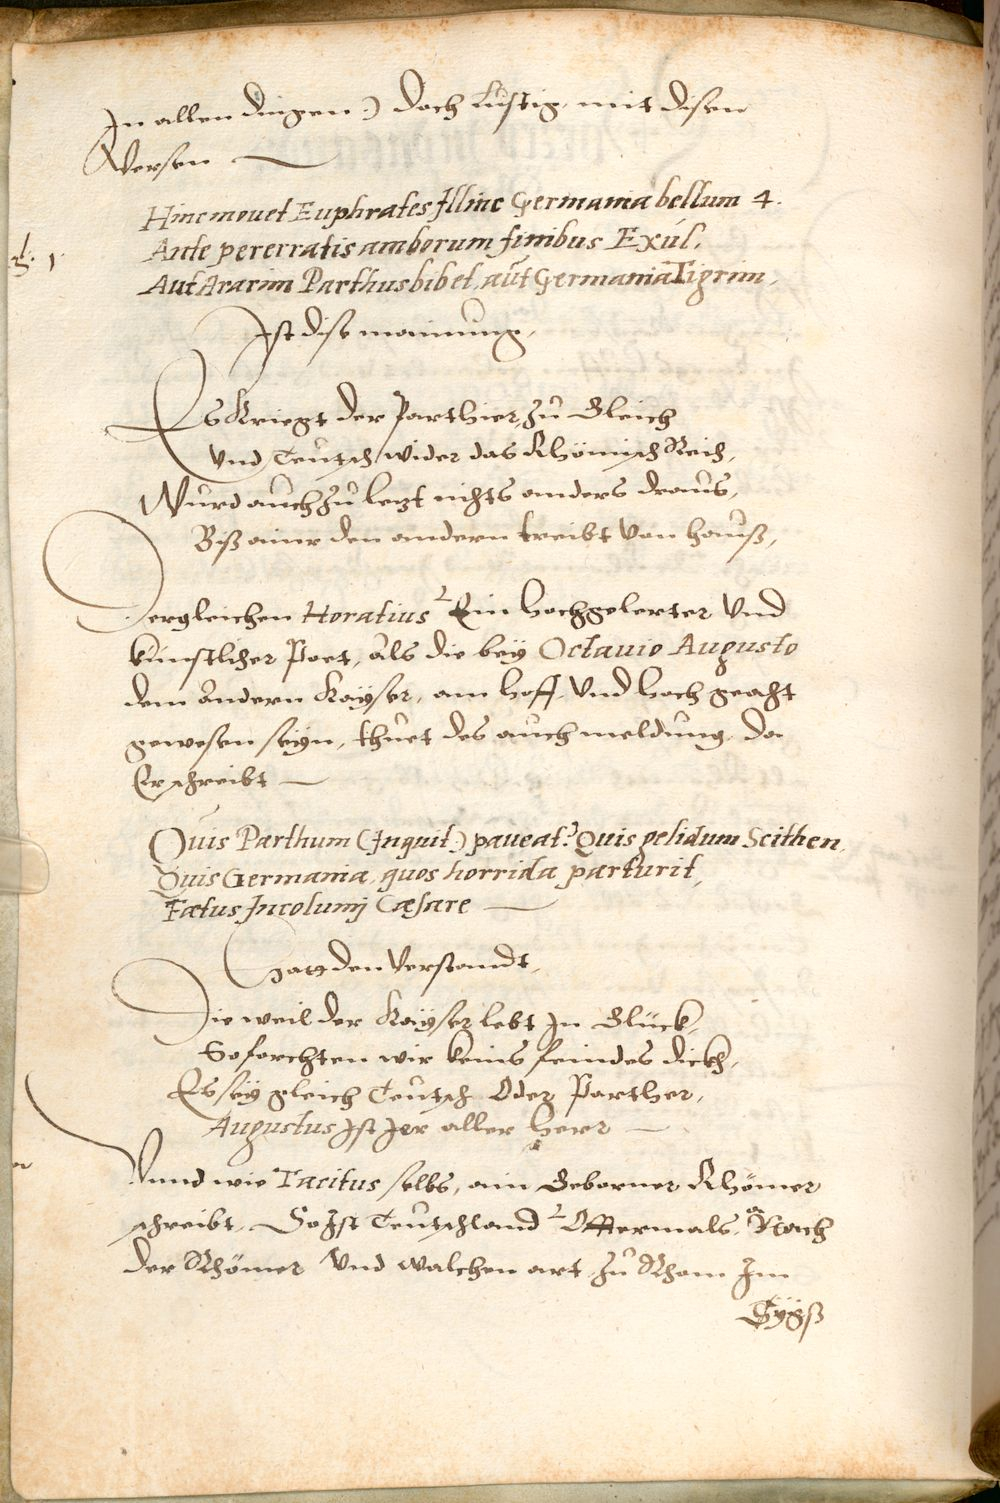 In allen dingen :) doch Lustig, mit disen
Versen
Hinc mouet Euphrates Illinc Germania bellum 4.
Ante pererratis amborum finibus Exul,
Aut Ararim Parthus bibet, aut Germania Tigrim,
Ist dise mainung,
Es Kriegt der Parthier, zu Gleich
Vnd Teutsch wider das Rhömisch Reich,
Wurd auch zu letzt nichts anders draus,
Biß ainer den andern treibt Von hauß,
Dergleichen Horatius Ein hochgelerter Vnd
künstlicher Poet, als die bey Octauio Augusto
dem andern Kayser, am hoff, Vnd hoch geacht
gewesen seyn, thuet des auch meldung, da
Er schreibt
Quis Parthum (Inquit:) paveat? Quis gelidum Scithen,
Quis Germania, quos horrida parturit,
Fætus Incolumj Cæsare
Hatt den Verstandt,
Die weil der Kayser lebt In Glückh,
So forchten wir keins feindes dickh,
Es sey gleich Teutsch Oder Parther,
Augustus Ist Jer aller Herr
Vnnd wie Tacitus selbs, ain Geborner Rhömer
schreibt, So Ist Teutschland Offtermals, Nach
der Rhömer Vnd Walchen art, zu Rhom Im